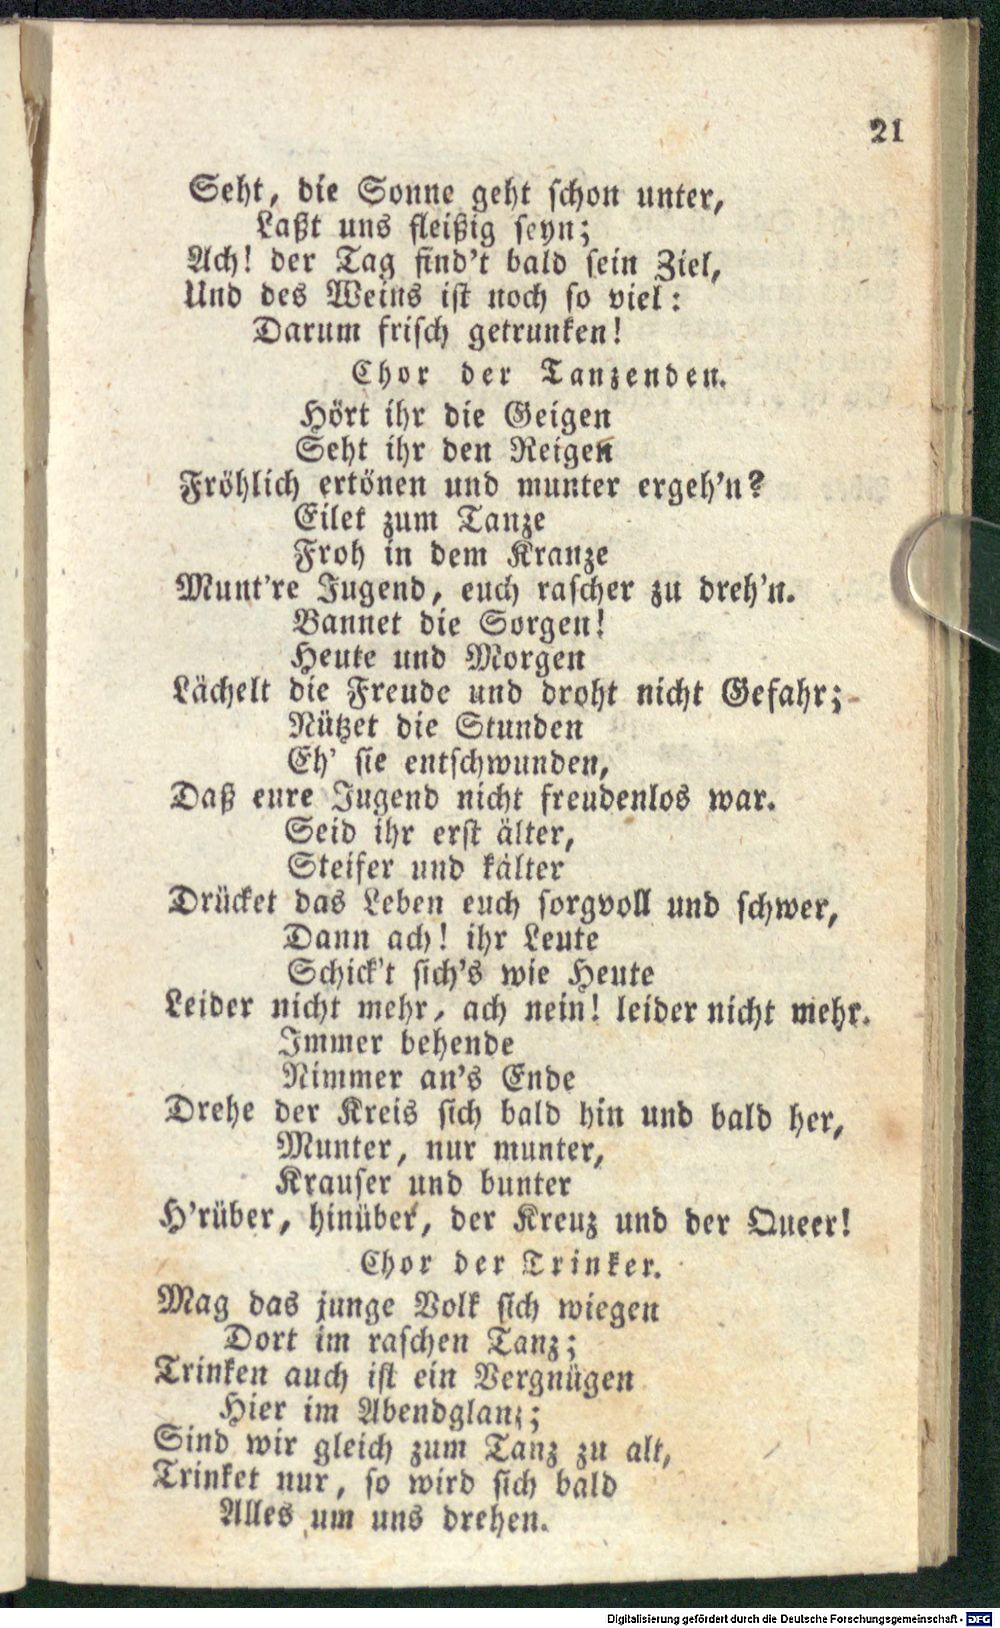 21
Seht, die Sonne geht schon unter,
Laßt uns fleißig seyn;
Ach! der Tag find't bald sein Ziel,
Und des Weins ist noch so viel:
Darum frisch getrunken!
Chor der Tanzenden.
Hört ihr die Geigen
Seht ihr den Reigen
Fröhlich ertönen und munter ergeh'n?
Eilet zum Tanze
Froh in dem Kranze
Munt're Jugend, euch rascher zu dreh'n.
Bannet die Sorgen!
Heute und Morgen
Lächelt die Freude und droht nicht Gefahr;
Nützet die Stunden
Eh' sie entschwunden,
Daß eure Jugend nicht freudenlos war.
Seid ihr erst älter,
Steifer und kälter
Drücket das Leben euch sorgvoll und schwer,
Dann ach! ihr Leute
Schick't sich's wie Heute
Leider nicht mehr, ach nein! leider nicht mehr.
Immer behende
Nimmer an's Ende
Drehe der Kreis sich bald hin und bald her,
Munter, nur munter,
Krauser und bunter
H'rüber, hinüber, der Kreuz und der Queer!
Chor der Trinker.
Mag das junge Volk sich wiegen
Dort im raschen Tanz;
Trinken auch ist ein Vergnügen
Hier im Abendglanz;
Sind wir gleich zum Tanz zu alt,
Trinket nur, so wird sich bald
Alles um uns drehen.
Digitalisierung gefördert durch die Deutsche Forschungsgemeinschaft - DFG